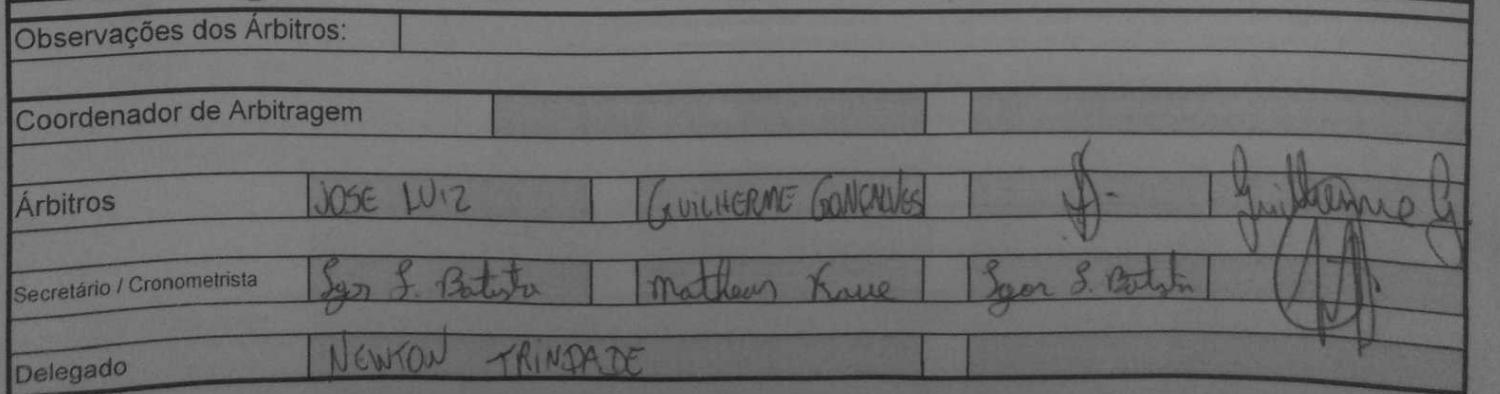 Observações dos Árbitros:
Coordenador de Arbitragem
Árbitros JOSE LUIZ GUILHERME GONÇALVES Guilherme G
Secretário / Cronometrista Igor S. Batista Matheus Kaue Igor S. Batista
Delegado NEWTON TRINDADE